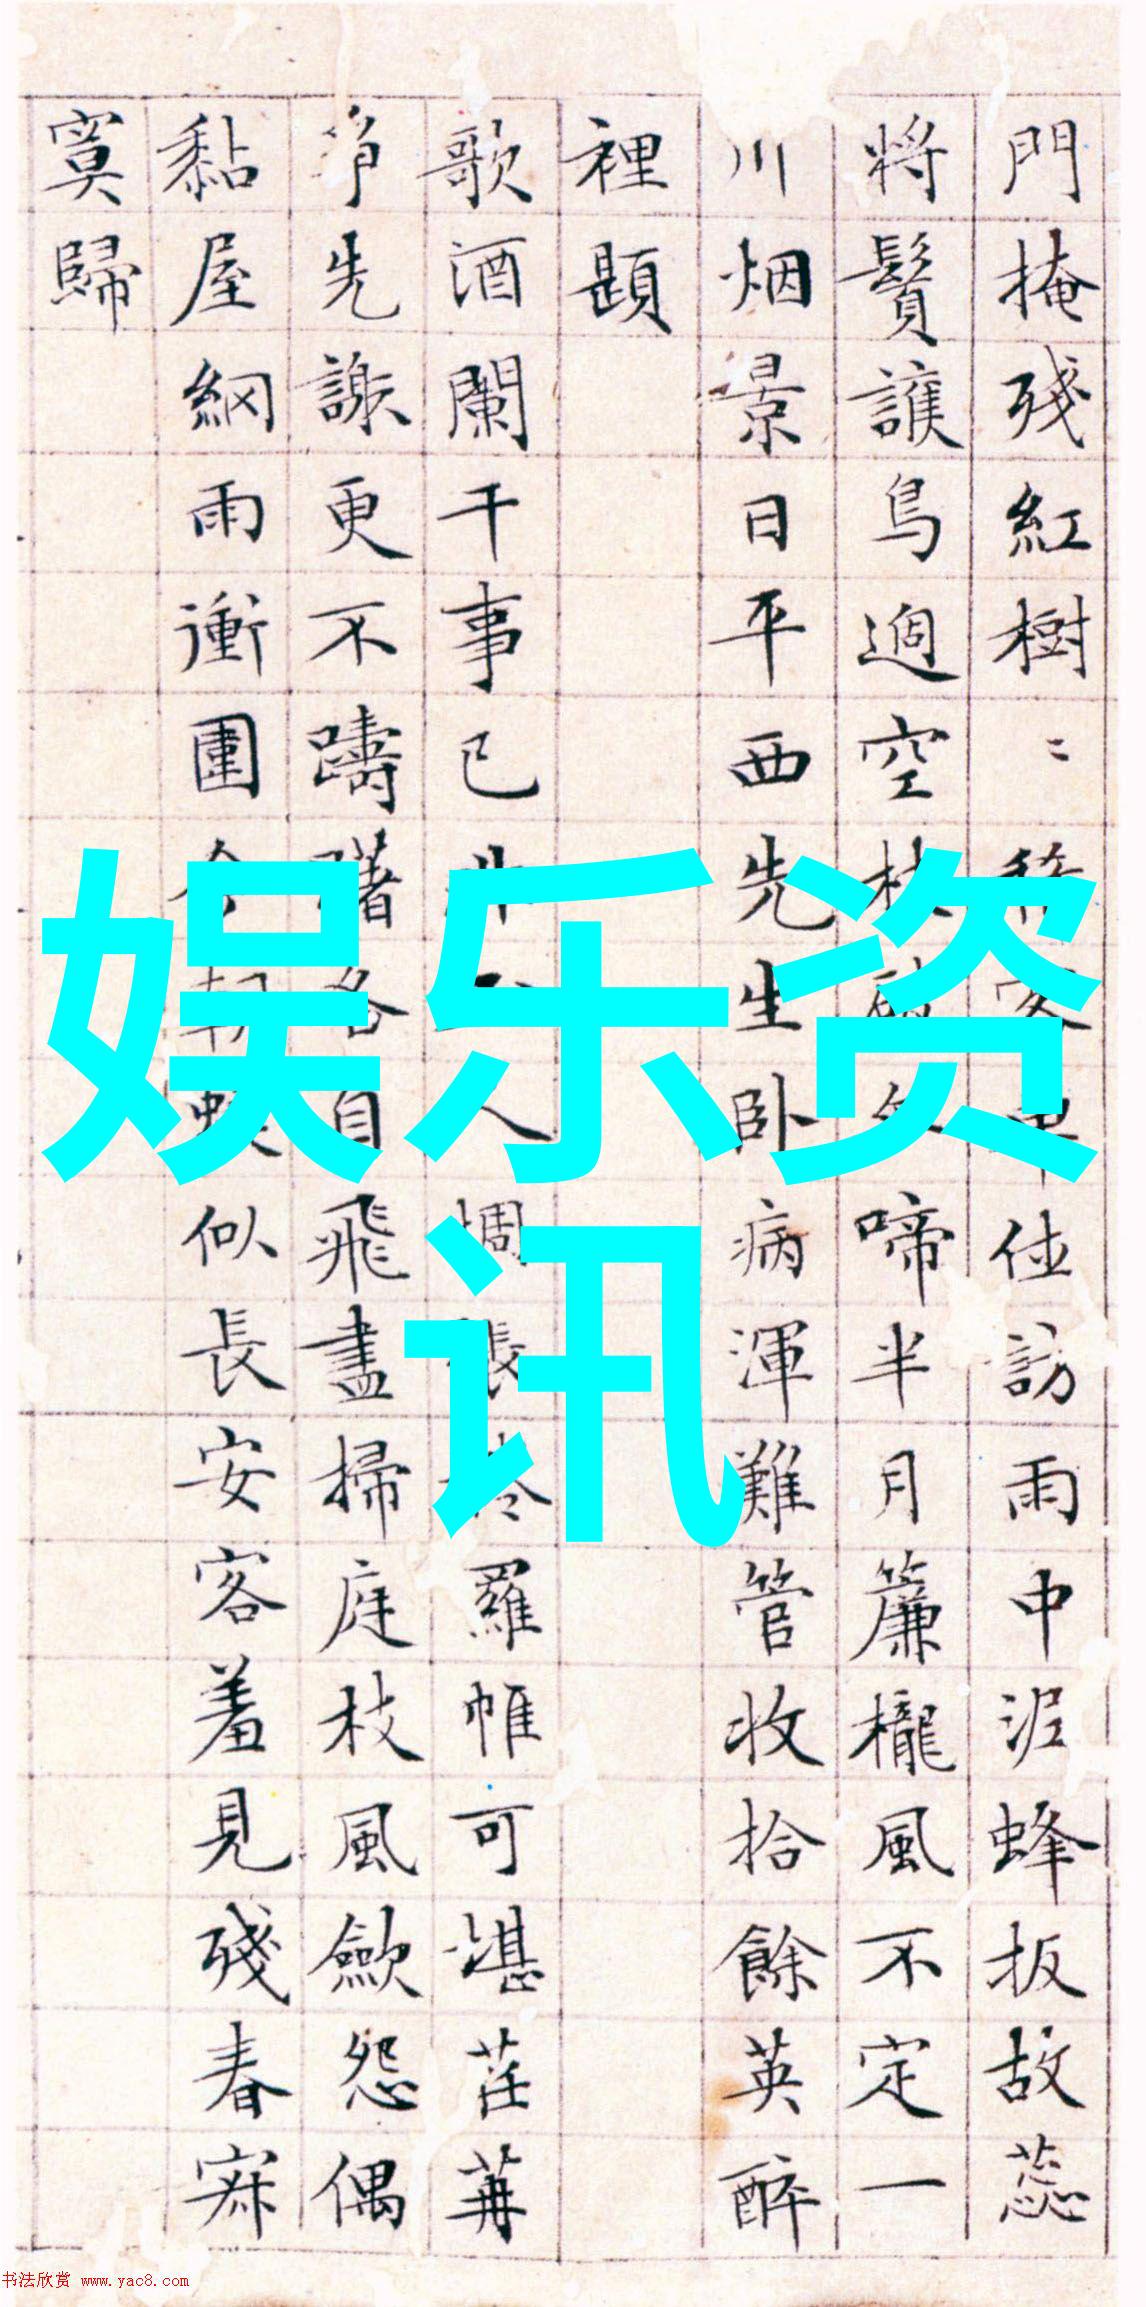 門掩殘紅樹〻訪雨中泥蜂扳故蕊
將鬚護鳥過空枝啼半月簾櫳風不定一
川烟景日平西先生卧病渾難管收拾餘英醉
裡題
歌酒闌干事已非人惆悵捲羅帷可堪荏苒
爭先謝更不躊躇各自飛盡掃庭枝風歛怨偶
黏屋網雨衝圍今朝似長安客羞見殘春寂
寞歸
娱乐资
讯
书法欣赏 www.yac8.com